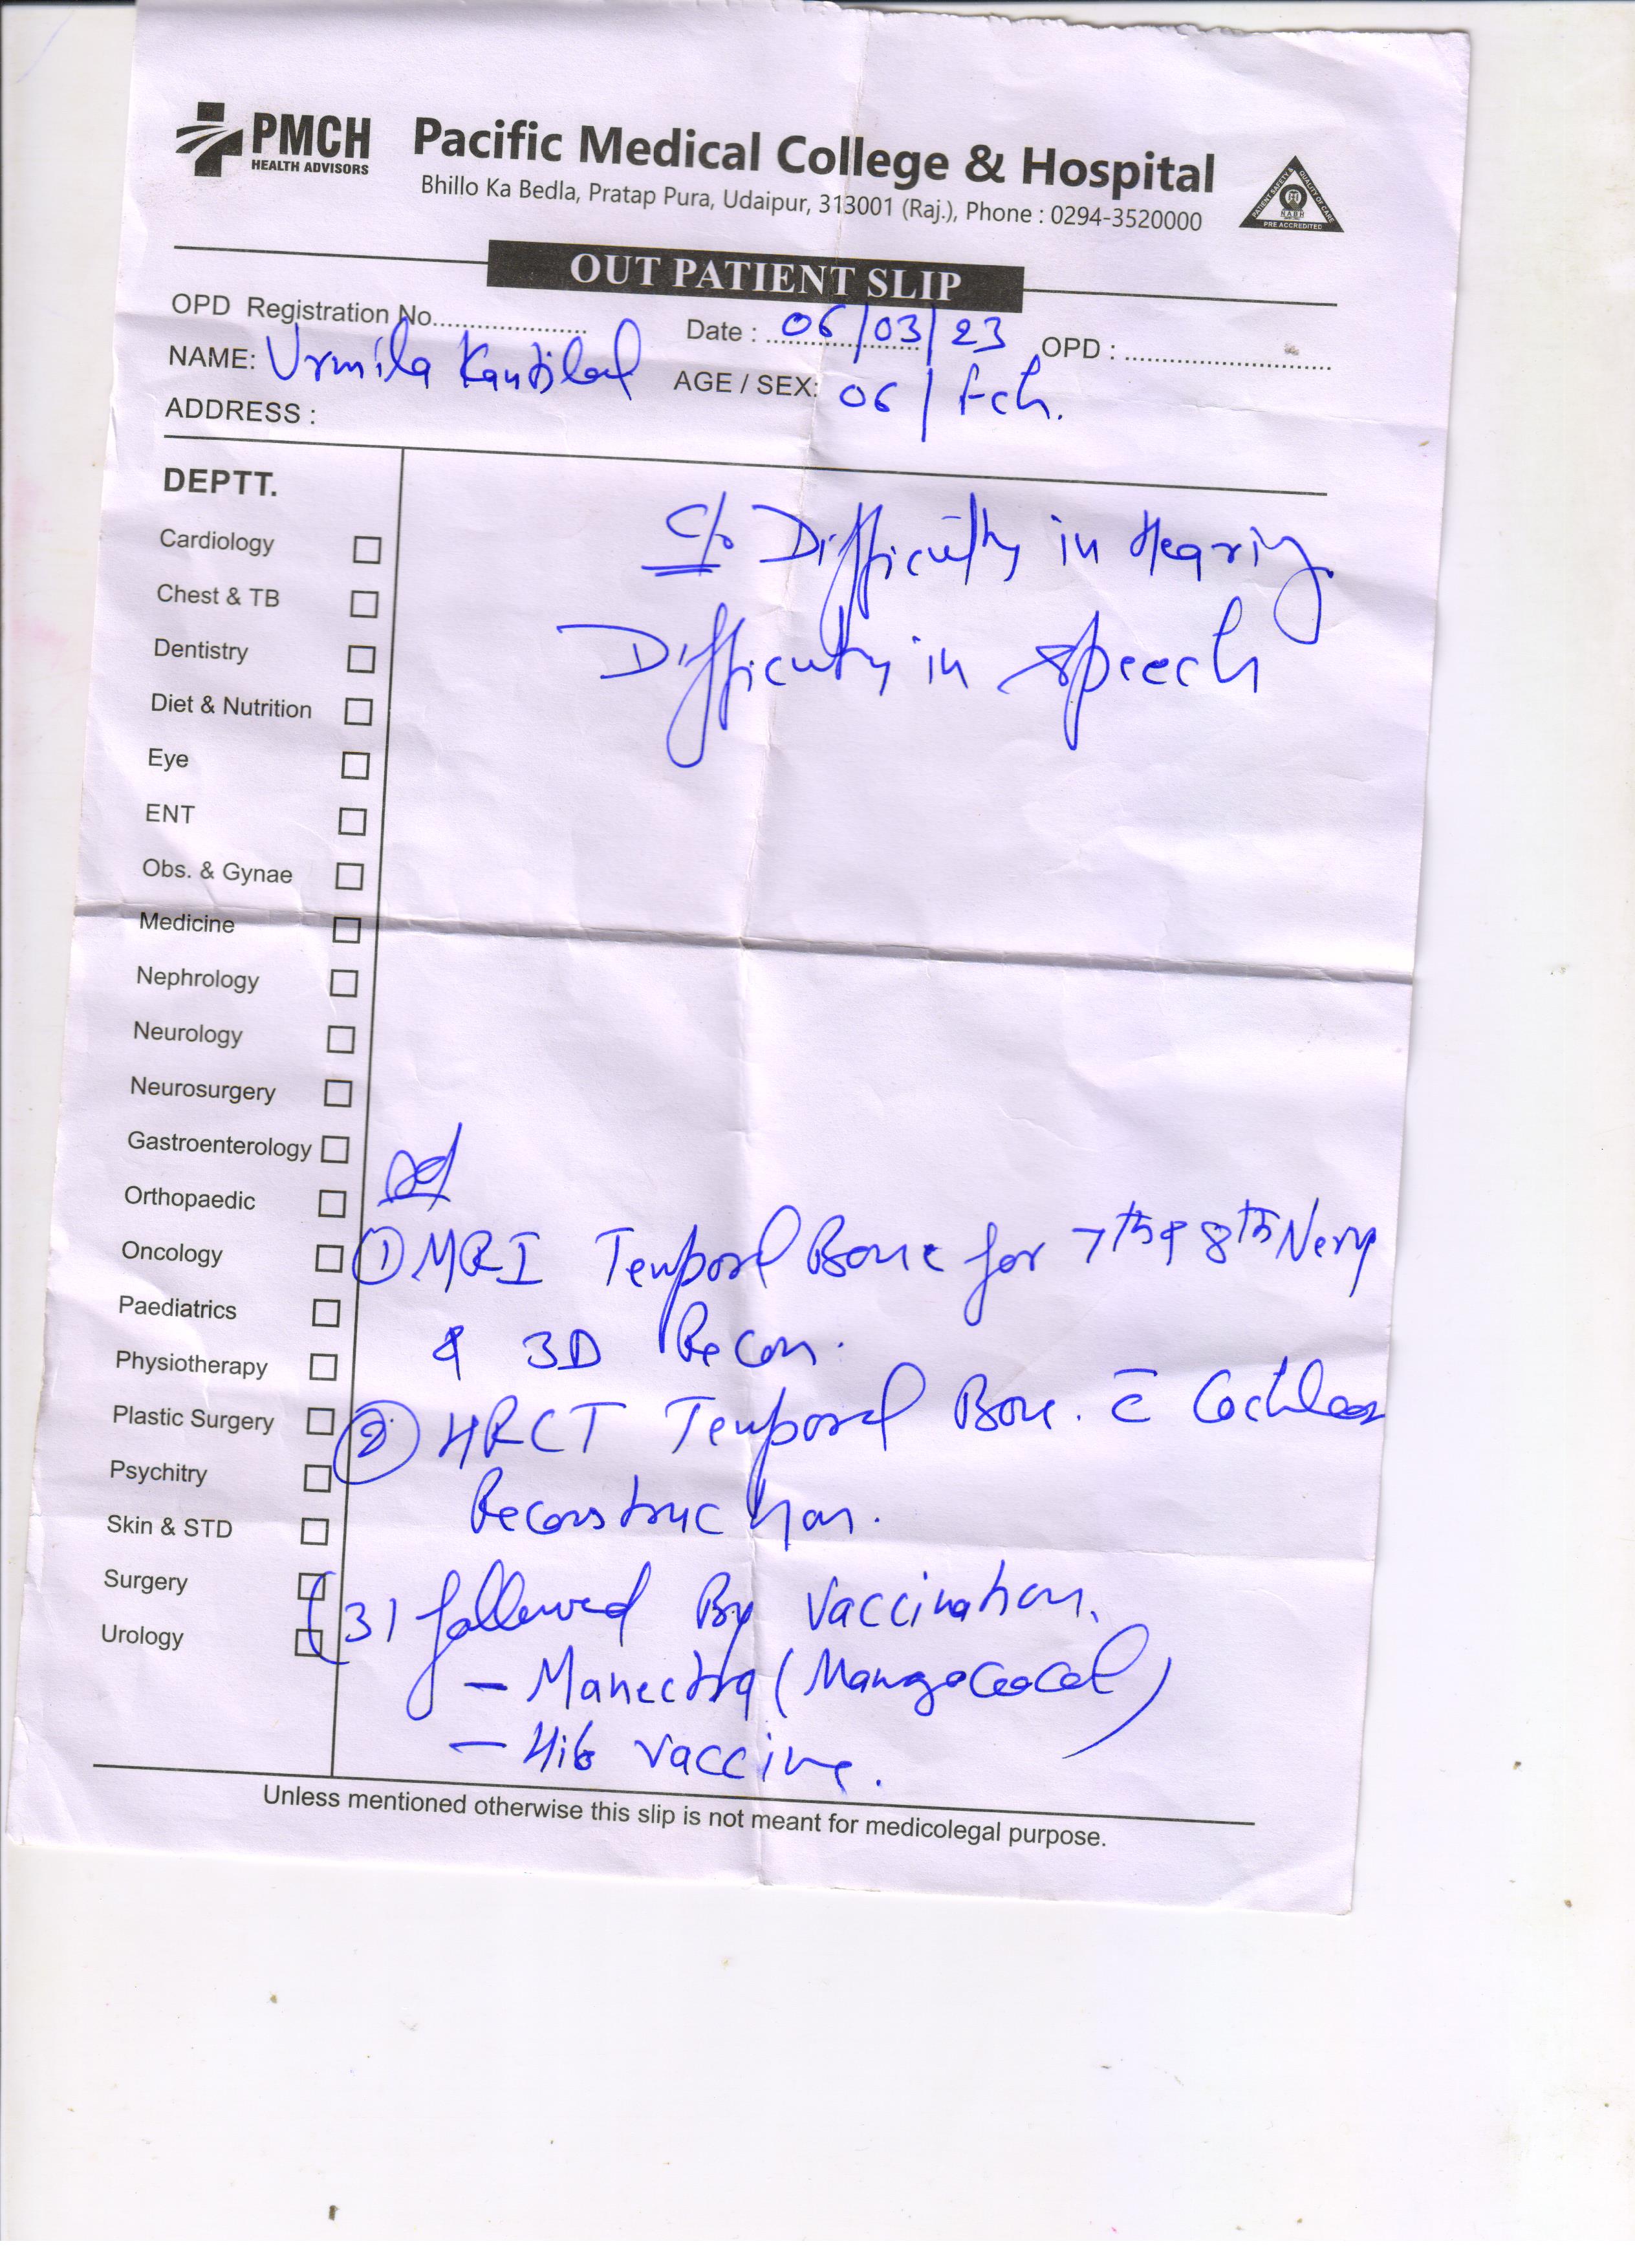 PMCH
HEALTH ADVISORS
Pacific Medical College & Hospital
Bhillo Ka Bedla, Pratap Pura, Udaipur, 313001 (Raj.), Phone : 0294-3520000
PATIENT SAFETY & QUALITY OF CARE
NABH
PRE ACCREDITED
OUT PATIENT SLIP
OPD Registration No..................... Date : 06/03/23 OPD : ..............................
NAME: Urmila Kantilal AGE / SEX: 06 / Fch.
ADDRESS :
DEPTT.
Cardiology
Chest & TB
Dentistry
Diet & Nutrition
Eye
ENT
Obs. & Gynae
Medicine
Nephrology
Neurology
Neurosurgery
Gastroenterology
Orthopaedic
Oncology
Paediatrics
Physiotherapy
Plastic Surgery
Psychitry
Skin & STD
Surgery
Urology
C/o Difficulty in Hearing
Difficulty in speech
① MRI Temporal Bone for 7th & 8th Nerve
& 3D Recon.
② HRCT Temporal Bone. c̄ Cochlear
Reconstruction.
(3) followed By Vaccination.
- Menectra (
- Hib vaccine.
Unless mentioned otherwise this slip is not meant for medicolegal purpose.